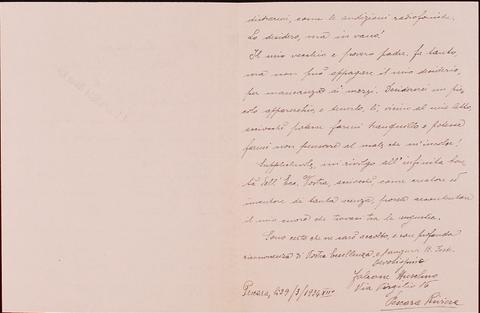 distrarmi, come le audizioni radiofoniche.
Lo desidero, ma in vano!
Il mio vecchio e povero padre, fa tanto,
ma non può appagare il mio desiderio,
per mancanza di mezzi. Desidererei un pic-
colo apparecchio, e tenerlo, lì, vicino al mio letto,
potermi farmi tranquillo e potermi
farmi non pensare al male che m'incolse!
Supplichevole, mi rivolgo all'infinita bon-
tà dell'Ecc. Vostra, come creatore ed
inventore di tanta scienza, possa accontentare
il mio cuore che trovasi tra le angustie.
Sono certo che ne sarò accolto, e con profonda
riconoscenza di Vostra Eccellenza, e
Devotissimo
Falcone Anselmo
Via Virgilio 16
Pescara Riviera
Pescara, li 29/3/1934 XII°